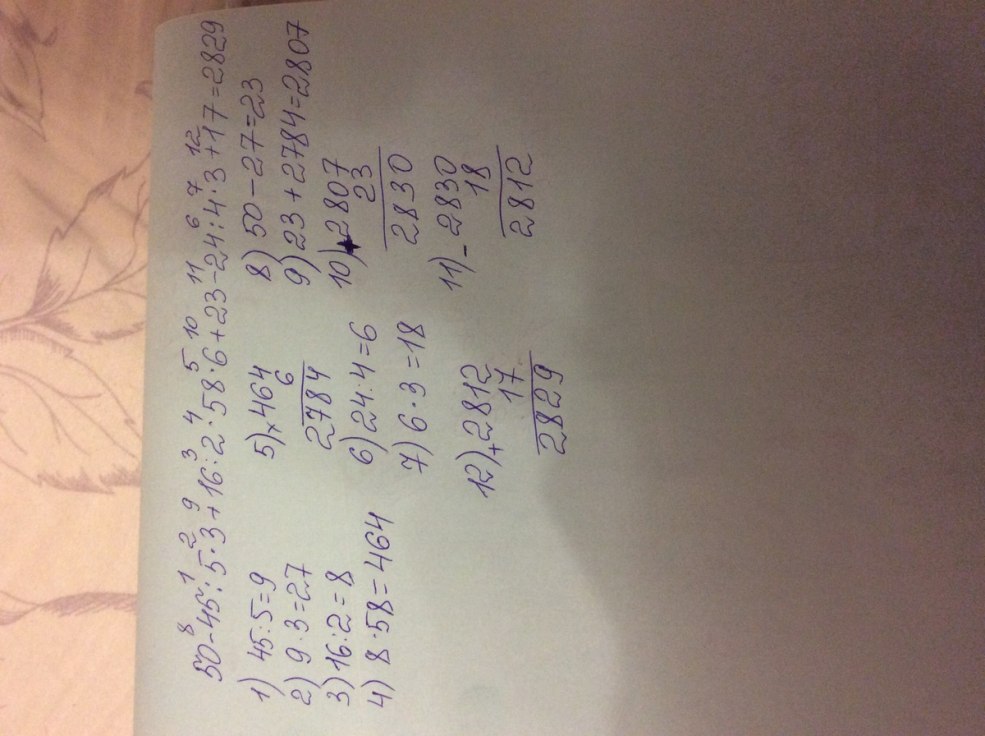 50-45:5·3+16:2·58·6+23-24:4·3+17=2829
8 1 2 9 3 4 5 10 11 6 7 12
1) 45:5=9
2) 9·3=27
3) 16:2=8
4) 8·58=464
5) × 464
6
2784
6) 24:4=6
7) 6·3=18
12) + 2812
17
2829
8) 50-27=23
9) 23+2784=2807
10) + 2807
23
2830
11) - 2830
18
2812